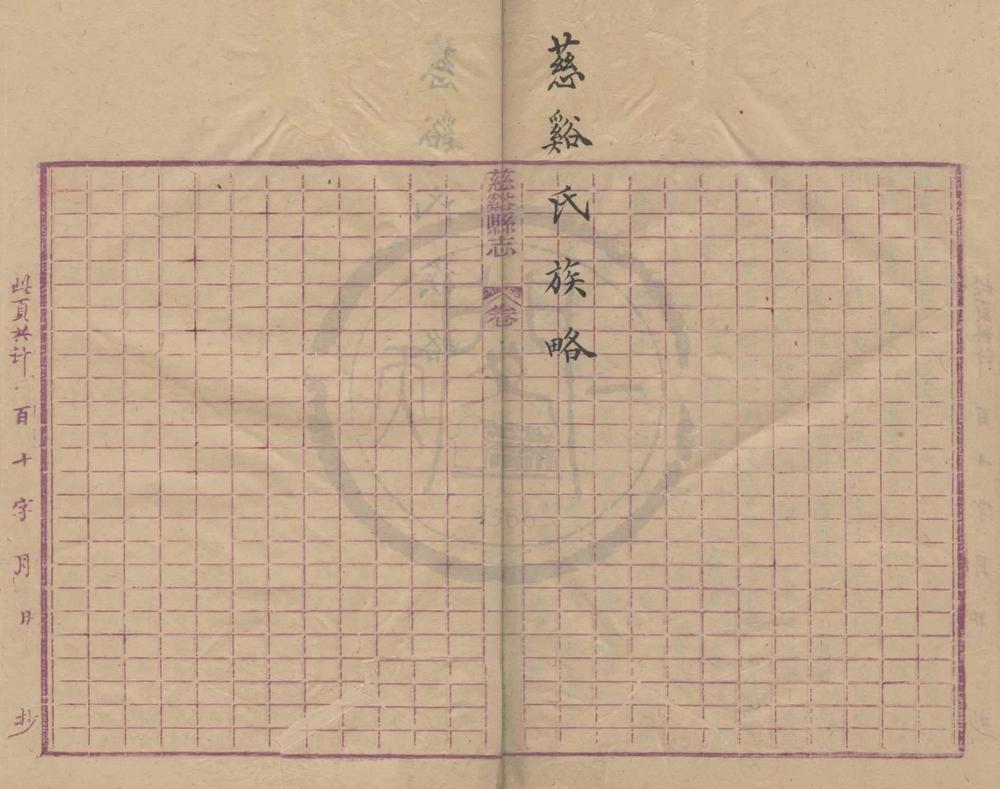 慈谿氏族略
慈谿縣志 卷
此頁共計 百十字 月 日 抄